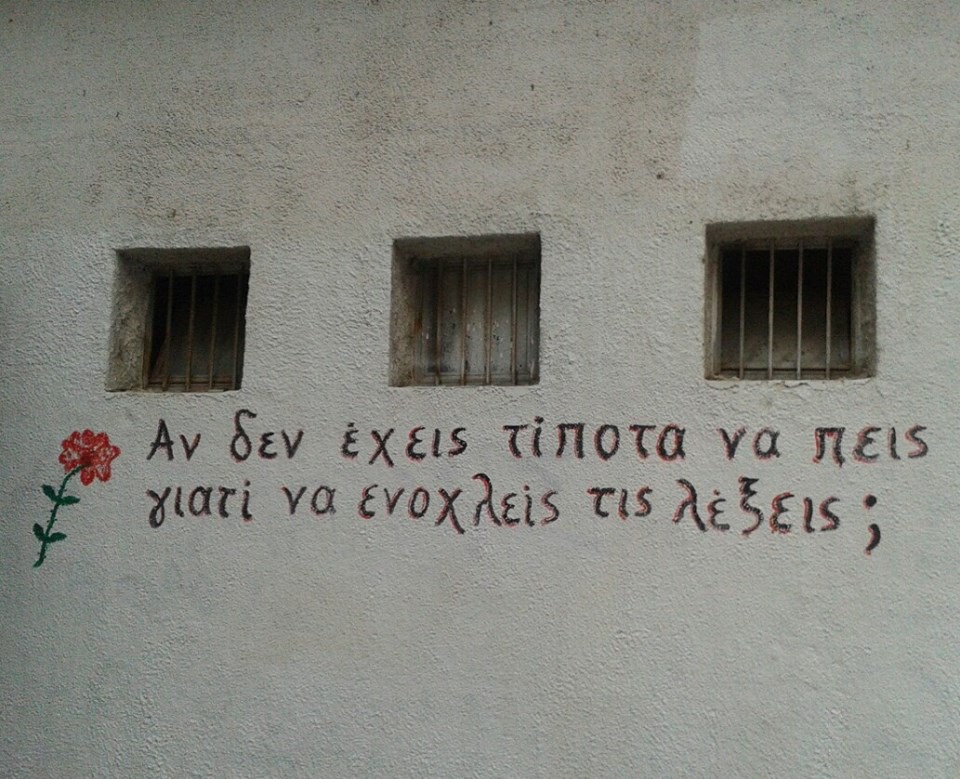 Αν δεν έχεις τίποτα να πεις
γιατί να ενοχλείς τις λέξεις;